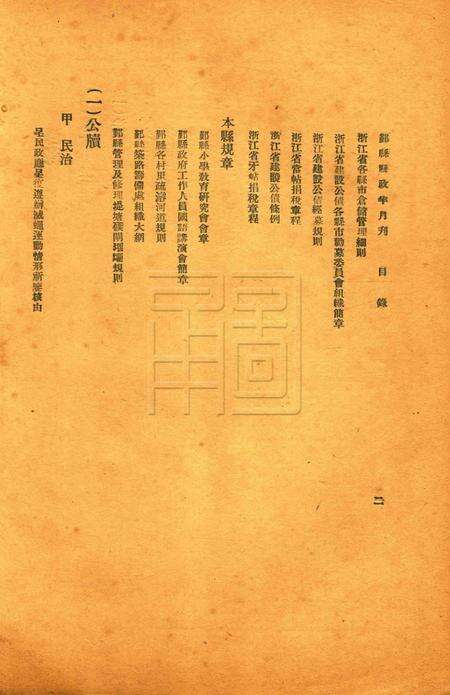 鄞縣縣政半月刊　目錄　二
浙江省各縣市倉儲管理細則
浙江省建設公債各縣市勸募委員會組織簡章
浙江省建設公債經募規則
浙江省當帖捐稅章程
浙江省建設公債條例
浙江省牙帖捐稅章程
本縣規章
鄞縣小學教育研究會會章
鄞縣政府工作人員國語講演會簡章
鄞縣各村里疏濬河道規則
鄞縣築路籌備處組織大綱
鄞縣管理及修理堤塘碶閘堰壩規則
（一）公牘
甲　民治
呈民政廳呈 遵辦滅蠅運動情形祈 核由